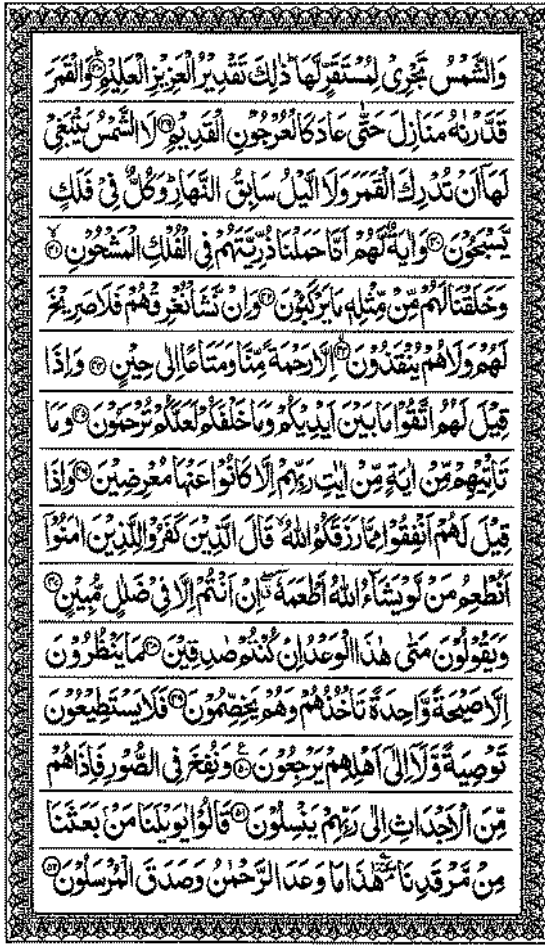 وَالشَّمْسُ تَجْرِىْ لِمُسْتَقَرٍّ لَّهَا ؕ ذٰلِكَ تَقْدِيْرُ الْعَزِيْزِ الْعَلِيْمِ ؕ﴿۳۸﴾ وَالْقَمَرَ
قَدَّرْنٰهُ مَنَازِلَ حَتّٰى عَادَ كَالْعُرْجُوْنِ الْقَدِيْمِ ﴿۳۹﴾ لَا الشَّمْسُ يَنْۢبَغِىْ
لَهَاۤ اَنْ تُدْرِكَ الْقَمَرَ وَلَا الَّيْلُ سَابِقُ النَّهَارِ ؕ وَكُلٌّ فِىْ فَلَكٍ
يَّسْبَحُوْنَ ﴿۴۰﴾ وَاٰيَةٌ لَّهُمْ اَنَّا حَمَلْنَا ذُرِّيَّتَهُمْ فِى الْفُلْكِ الْمَشْحُوْنِ ۙ﴿۴۱﴾
وَخَلَقْنَا لَهُمْ مِّنْ مِّثْلِهٖ مَا يَرْكَبُوْنَ ﴿۴۲﴾ وَاِنْ نَّشَاْ نُغْرِقْهُمْ فَلَا صَرِيْخَ
لَهُمْ وَلَا هُمْ يُنْقَذُوْنَ ۙ﴿۴۳﴾ اِلَّا رَحْمَةً مِّنَّا وَمَتَاعًا اِلٰى حِيْنٍ ﴿۴۴﴾ وَاِذَا
قِيْلَ لَهُمُ اتَّقُوْا مَا بَيْنَ اَيْدِيْكُمْ وَمَا خَلْفَكُمْ لَعَلَّكُمْ تُرْحَمُوْنَ ﴿۴۵﴾ وَمَا
تَاْتِيْهِمْ مِّنْ اٰيَةٍ مِّنْ اٰيٰتِ رَبِّهِمْ اِلَّا كَانُوْا عَنْهَا مُعْرِضِيْنَ ﴿۴۶﴾ وَاِذَا
قِيْلَ لَهُمْ اَنْفِقُوْا مِمَّا رَزَقَكُمُ اللّٰهُ ۙ قَالَ الَّذِيْنَ كَفَرُوْا لِلَّذِيْنَ اٰمَنُوْۤا
اَنُطْعِمُ مَنْ لَّوْ يَشَآءُ اللّٰهُ اَطْعَمَهٗۤ ۖ اِنْ اَنْتُمْ اِلَّا فِىْ ضَلٰلٍ مُّبِيْنٍ ﴿۴۷﴾
وَيَقُوْلُوْنَ مَتٰى هٰذَا الْوَعْدُ اِنْ كُنْتُمْ صٰدِقِيْنَ ﴿۴۸﴾ مَا يَنْظُرُوْنَ
اِلَّا صَيْحَةً وَّاحِدَةً تَاْخُذُهُمْ وَهُمْ يَخِصِّمُوْنَ ﴿۴۹﴾ فَلَا يَسْتَطِيْعُوْنَ
تَوْصِيَةً وَّلَاۤ اِلٰٓى اَهْلِهِمْ يَرْجِعُوْنَ ﴿۵۰﴾ وَنُفِخَ فِى الصُّوْرِ فَاِذَا هُمْ
مِّنَ الْاَجْدَاثِ اِلٰى رَبِّهِمْ يَنْسِلُوْنَ ﴿۵۱﴾ قَالُوْا يٰوَيْلَنَا مَنْۢ بَعَثَنَا
مِنْ مَّرْقَدِنَا ۘ هٰذَا مَا وَعَدَ الرَّحْمٰنُ وَصَدَقَ الْمُرْسَلُوْنَ ﴿۵۲﴾